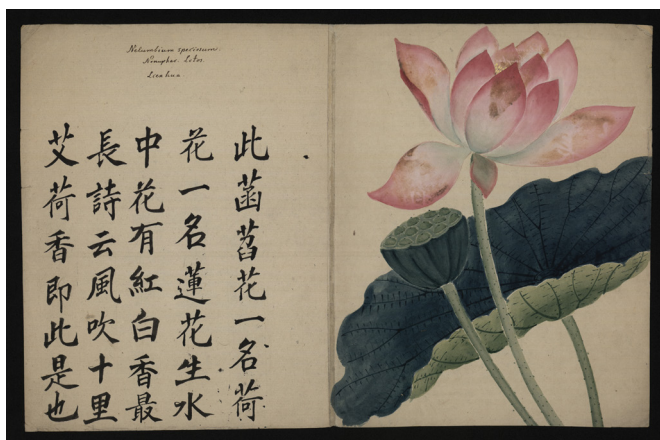 Nelumbium speciosum.
Nimphar. Lotos.
Lien hua
此菡萏花一名荷
花一名蓮花生水
中花有紅白香最
長詩云風吹十里
芰荷香即此是也